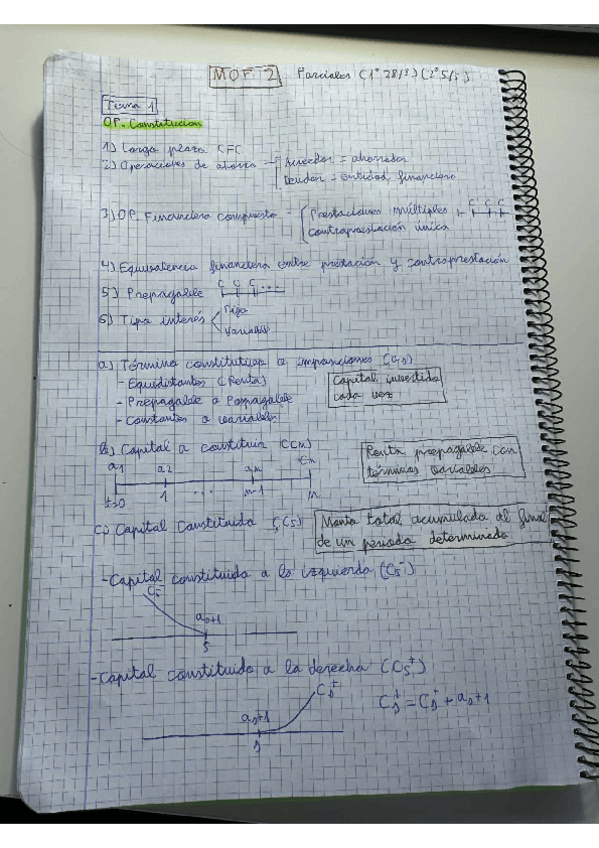 MOF 2 Parciales (1º 28/3) (2º 5/5)
Tema 1
OP. Constitucion
1) Largo plazo CFC
2) Operaciones de ahorro Acreedor = ahorrador
Deudor = entidad financiera
3) OP. Financiera compuesta - Prestaciones múltiples C C C
contraprestación única
4) Equivalencia financiera entre pretación y contraprestación
5) Prepagable C C C ...
6) Tipo interés Fijo
Variable
a) Término constitutivo o imposiciones (as)
- Equidistantes (Renta)
- Prepagable o Pospagable
- Constantes o variables
Capital invertido
cada vez
b) Capital a constituir (Cn)
Renta prepagable con
términos variables
a1 a2 an Cn
t=0 1 ... n-1 n
c) Capital Constituido (Cs)
Monto total acumulado al final
de un periodo determinado
- Capital constituido a la izquierda (Cs⁻)
Cs⁻
as+1
s
- Capital constituido a la derecha (Cs⁺)
Cs⁺
as+1
s
Cs⁺ = Cs⁺ + as+1